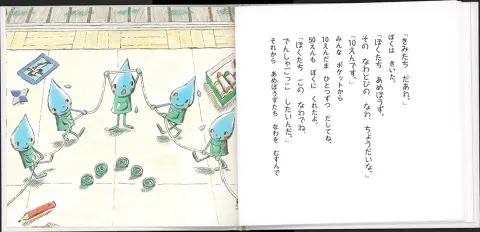 「きみたち だあれ。」
ぼくは きいた。
「ぼくたち あめぼうず。
その なわとびの なわ、ちょうだいな。」
「10えんです。」
みんな ポケットから
10えんだま ひとつずつ だしてね、
50えんも ぼくに くれたよ。
「ぼくたち この なわでね、
でんしゃごっこ したいんだ。」
それから あめぼうずたち なわを むすんで